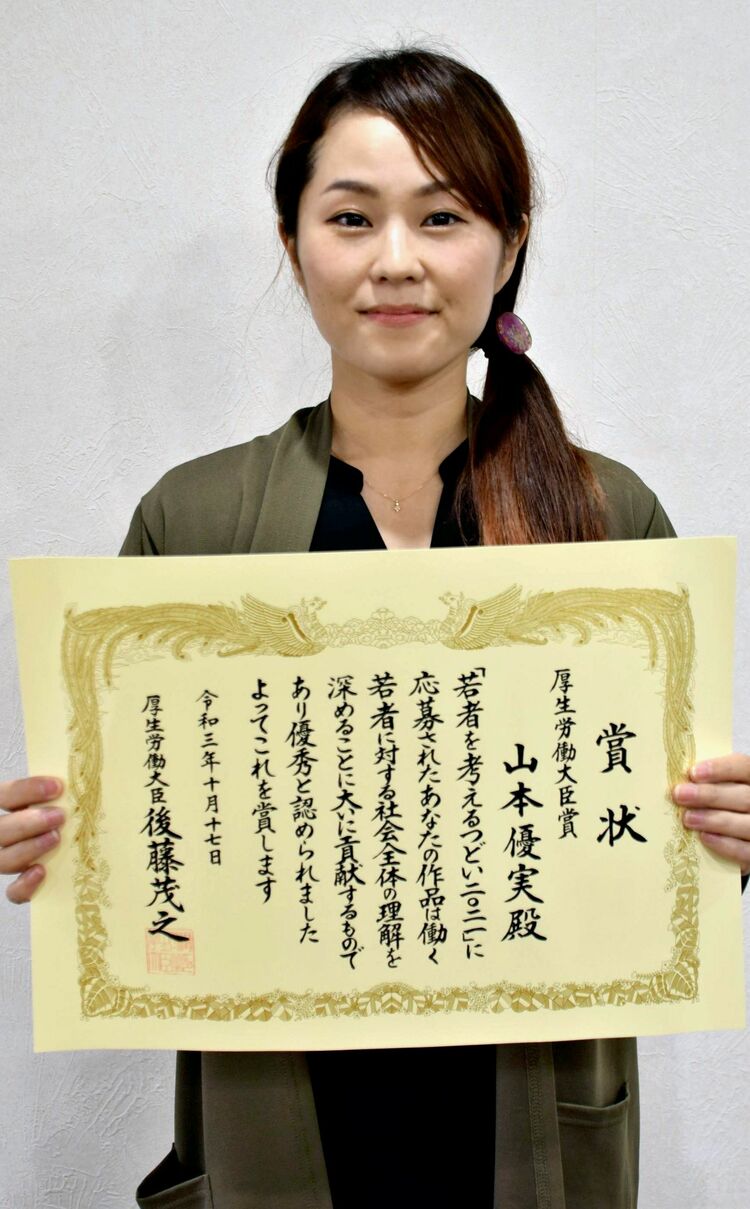 賞状
厚生労働大臣賞
山本優実殿
「若者を考えるつどい二〇二一」に
応募されたあなたの作品は働く
若者に対する社会全体の理解を
深めることに大いに貢献するもので
あり優秀と認められました
よってこれを賞します
令和三年十月十七日
厚生労働大臣 後藤茂之